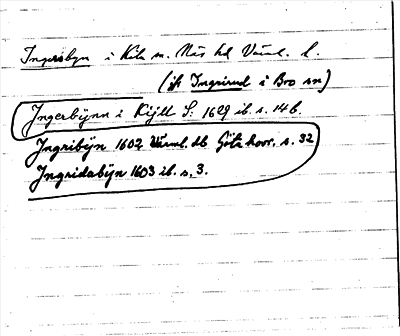 Ingersbyn i Kila sn. Näs hd Värml. l.
(jfr Ingrirud i Bro sn)
Ingerbÿnn i Kijll S: 1629 ib. s. 146.
Ingribÿn 1602 Värml. db Göta hovr. s. 32
Ingridabÿn 1603 ib. s. 3.